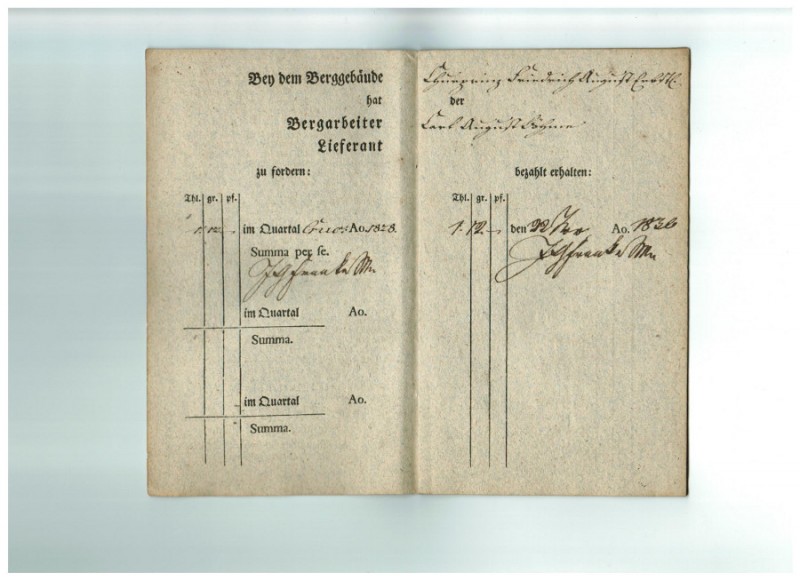 Bey dem Berggebäude
hat
Bergarbeiter
Lieferant
zu fordern:
Thl. gr. pf.
1. 12. — im Quartal Crucis Ao. 1828.
Summa per se.
im Quartal Ao.
Summa.
im Quartal Ao.
Summa.
Churprinz Friedrich August Erbst.
der
Carl August
bezahlt erhalten:
Thl. gr. pf.
1. 12. — den 22 Ao. 1836